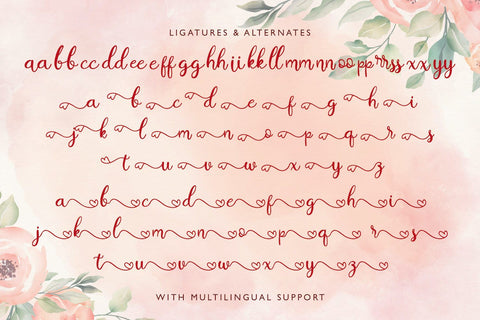 LIGATURES & ALTERNATES
aa bb cc dd ee ff gg hh ii kk ll mm nn oo pp rr ss xx yy
a b c d e f g h i
j k l m n o p q r s
t u v w x y z
a b c d e f g h i
j k l m n o p q r s
t u v w x y z
WITH MULTILINGUAL SUPPORT